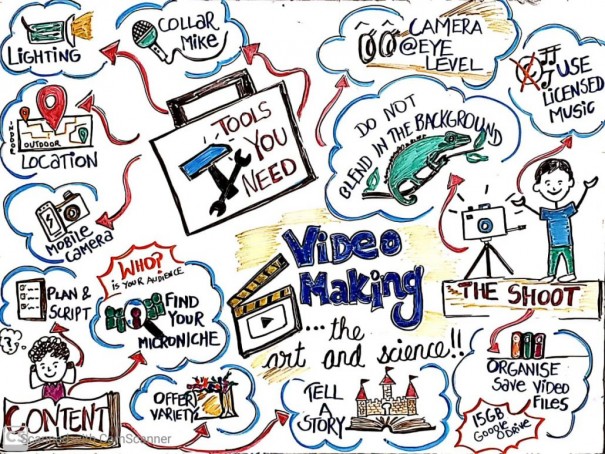 LIGHTING
COLLAR
MIKE
CAMERA
@EYE
LEVEL
USE
LICENSED
MUSIC
INDOOR
OUTDOOR
LOCATION
TOOLS
YOU
NEED
DO NOT
BLEND IN THE BACKGROUND
MOBILE
CAMERA
WHO?
IS YOUR AUDIENCE
PLAN &
SCRIPT
FIND
YOUR
MICRONICHE
VIDEO
MAKING
...the
art and science!!
THE SHOOT
?
CONTENT
OFFER
VARIETY
TELL
A
STORY
ORGANISE
Save VIDEO
FILES
15GB
Google Drive
CS Scanned with CamScanner